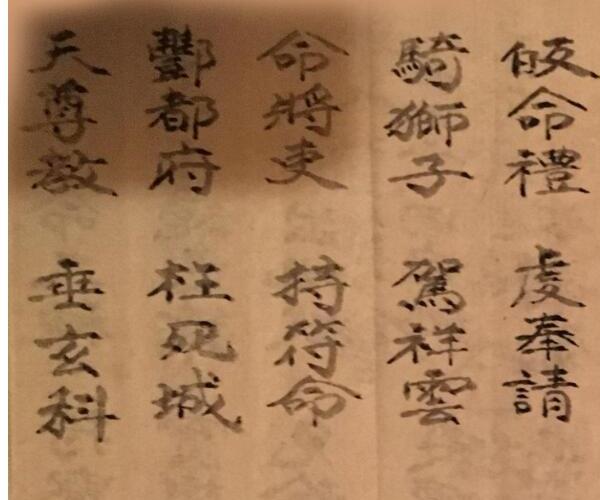 皈命禮 虔奉請
騎獅子 駕祥雲
命將吏 持符命
酆都府 枉死城
天尊教 垂玄科